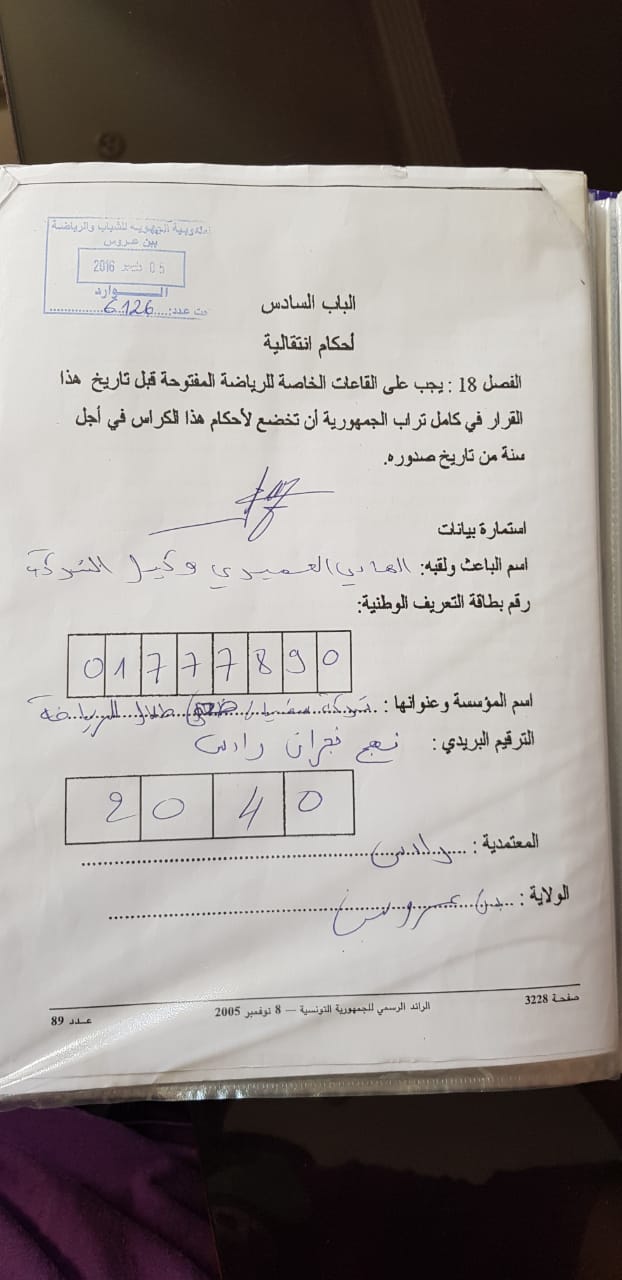 المندوبية الجهوية للشباب والرياضة
ببن عروس
05 2016
الوارد
تحت عدد: 6126
الباب السادس
أحكام انتقالية
الفصل 18 : يجب على القاعات الخاصة للرياضة المفتوحة قبل تاريخ هذا
القرار في كامل تراب الجمهورية أن تخضع لأحكام هذا الكراس في أجل
سنة من تاريخ صدوره.
استمارة بيانات
اسم الباعث ولقبه: الهادي العميري وكيل الشركة
رقم بطاقة التعريف الوطنية:
0 1 7 7 7 8 9 0
اسم المؤسسة وعنوانها : شركة للرياضة
الترقيم البريدي : نهج نجران رادس
2 0 4 0
المعتمدية : رادس
الولاية : بن عروس
صفحة 3228 الرائد الرسمي للجمهورية التونسية — 8 نوفمبر 2005 عـدد 89